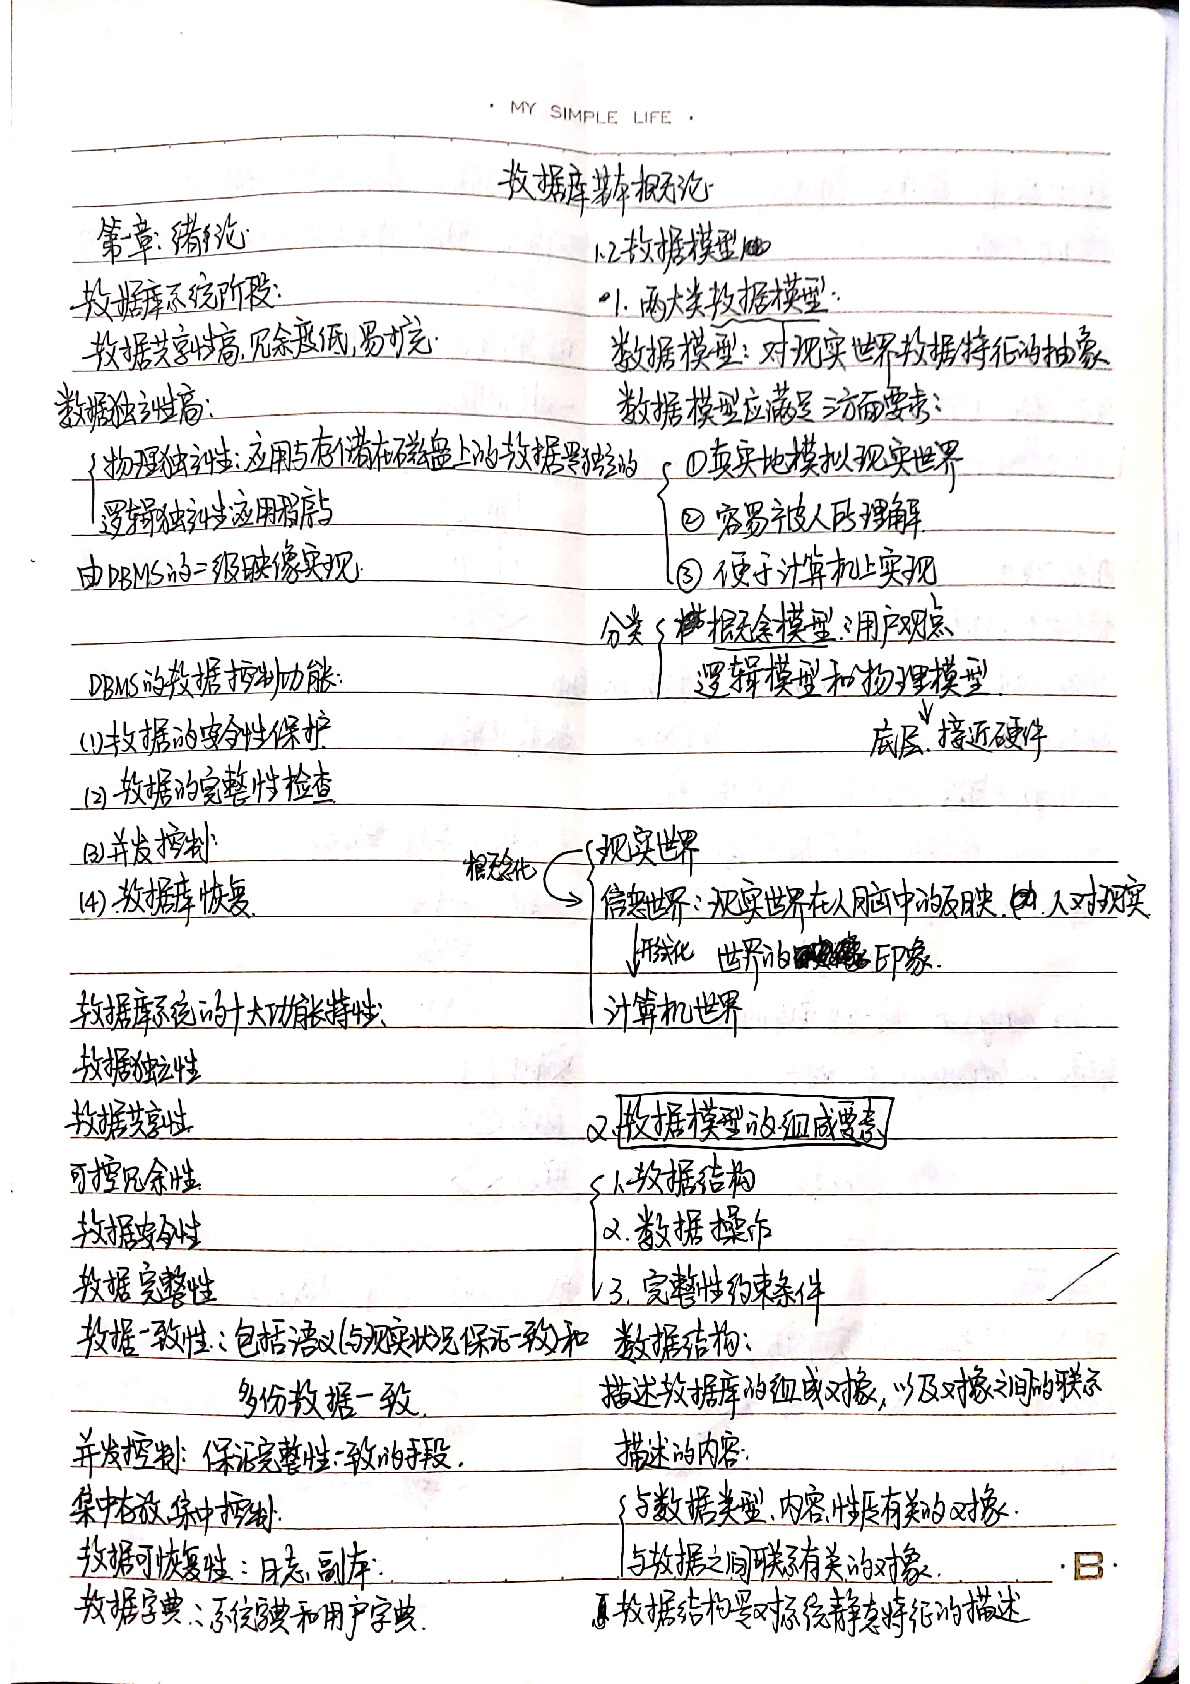 · MY SIMPLE LIFE ·
数据库基本概论
第一章:绪论
数据库系统阶段:
数据共享性高,冗余度低,易扩充
数据独立性高:
物理独立性:应用与存储在磁盘上的数据是独立的
逻辑独立性:应用程序与
由DBMS的二级映像实现
DBMS的数据控制功能:
(1)数据的安全性保护
(2)数据的完整性检查
(3)并发控制
(4)数据库恢复
数据库系统的十大功能特性:
数据独立性
数据共享性
可控冗余性
数据安全性
数据完整性
数据一致性:包括语义(与现实状况保证一致)和
多份数据一致
并发控制:保证完整性一致的手段.
集中存放,集中控制
数据可恢复性:日志,副本
数据字典:系统字典和用户字典.
1.2数据模型
1.两大类数据模型:
数据模型:对现实世界数据特征的抽象
数据模型应满足三方面要求:
①真实地模拟现实世界
②容易被人所理解
③便于计算机上实现
分类 概念模型:用户观点
逻辑模型和物理模型
底层,接近硬件
概念化
现实世界
信息世界:现实世界在人脑中的反映. 人对现实
形式化 世界的 印象.
计算机世界
2.数据模型的组成要素
1.数据结构
2.数据操作
3.完整性约束条件
数据结构:
描述数据库的组成对像,以及对像之间的联系
描述的内容:
与数据类型、内容、性质有关的对像.
与数据之间联系有关的对像.
数据结构是对系统静态特征的描述
·B·